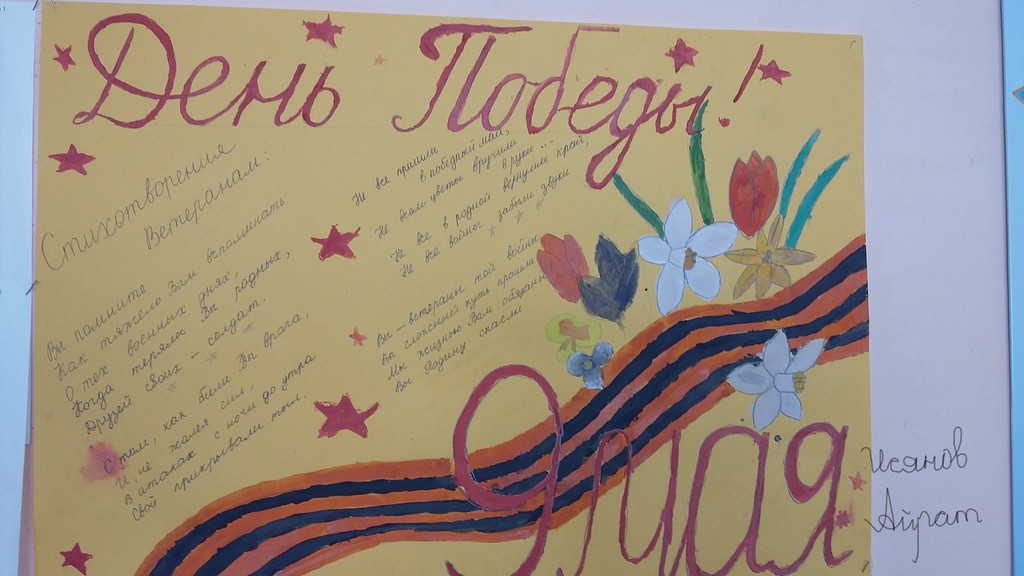 День Победы!
Стихотворения
Ветеранам:
Вы помните
Как тяжело Вам вспоминать
О тех военных днях,
Когда теряли Вы родных,
Друзей своих - солдат.
О том, как били Вы врага,
И, не жалея сил,
В атаках с ночи до утра
Свой прикрывали тыл.
Не все пришли
в победный май,
Не всем цветы вручили
в руки...
Не все в родной вернулись край,
Не все войны забыли звуки
Вы - ветераны той войны
Вы сложный путь прошли
Мы жизнью Вам обязаны
Вы Родину спасли
9 мая
Исянов
Айрат